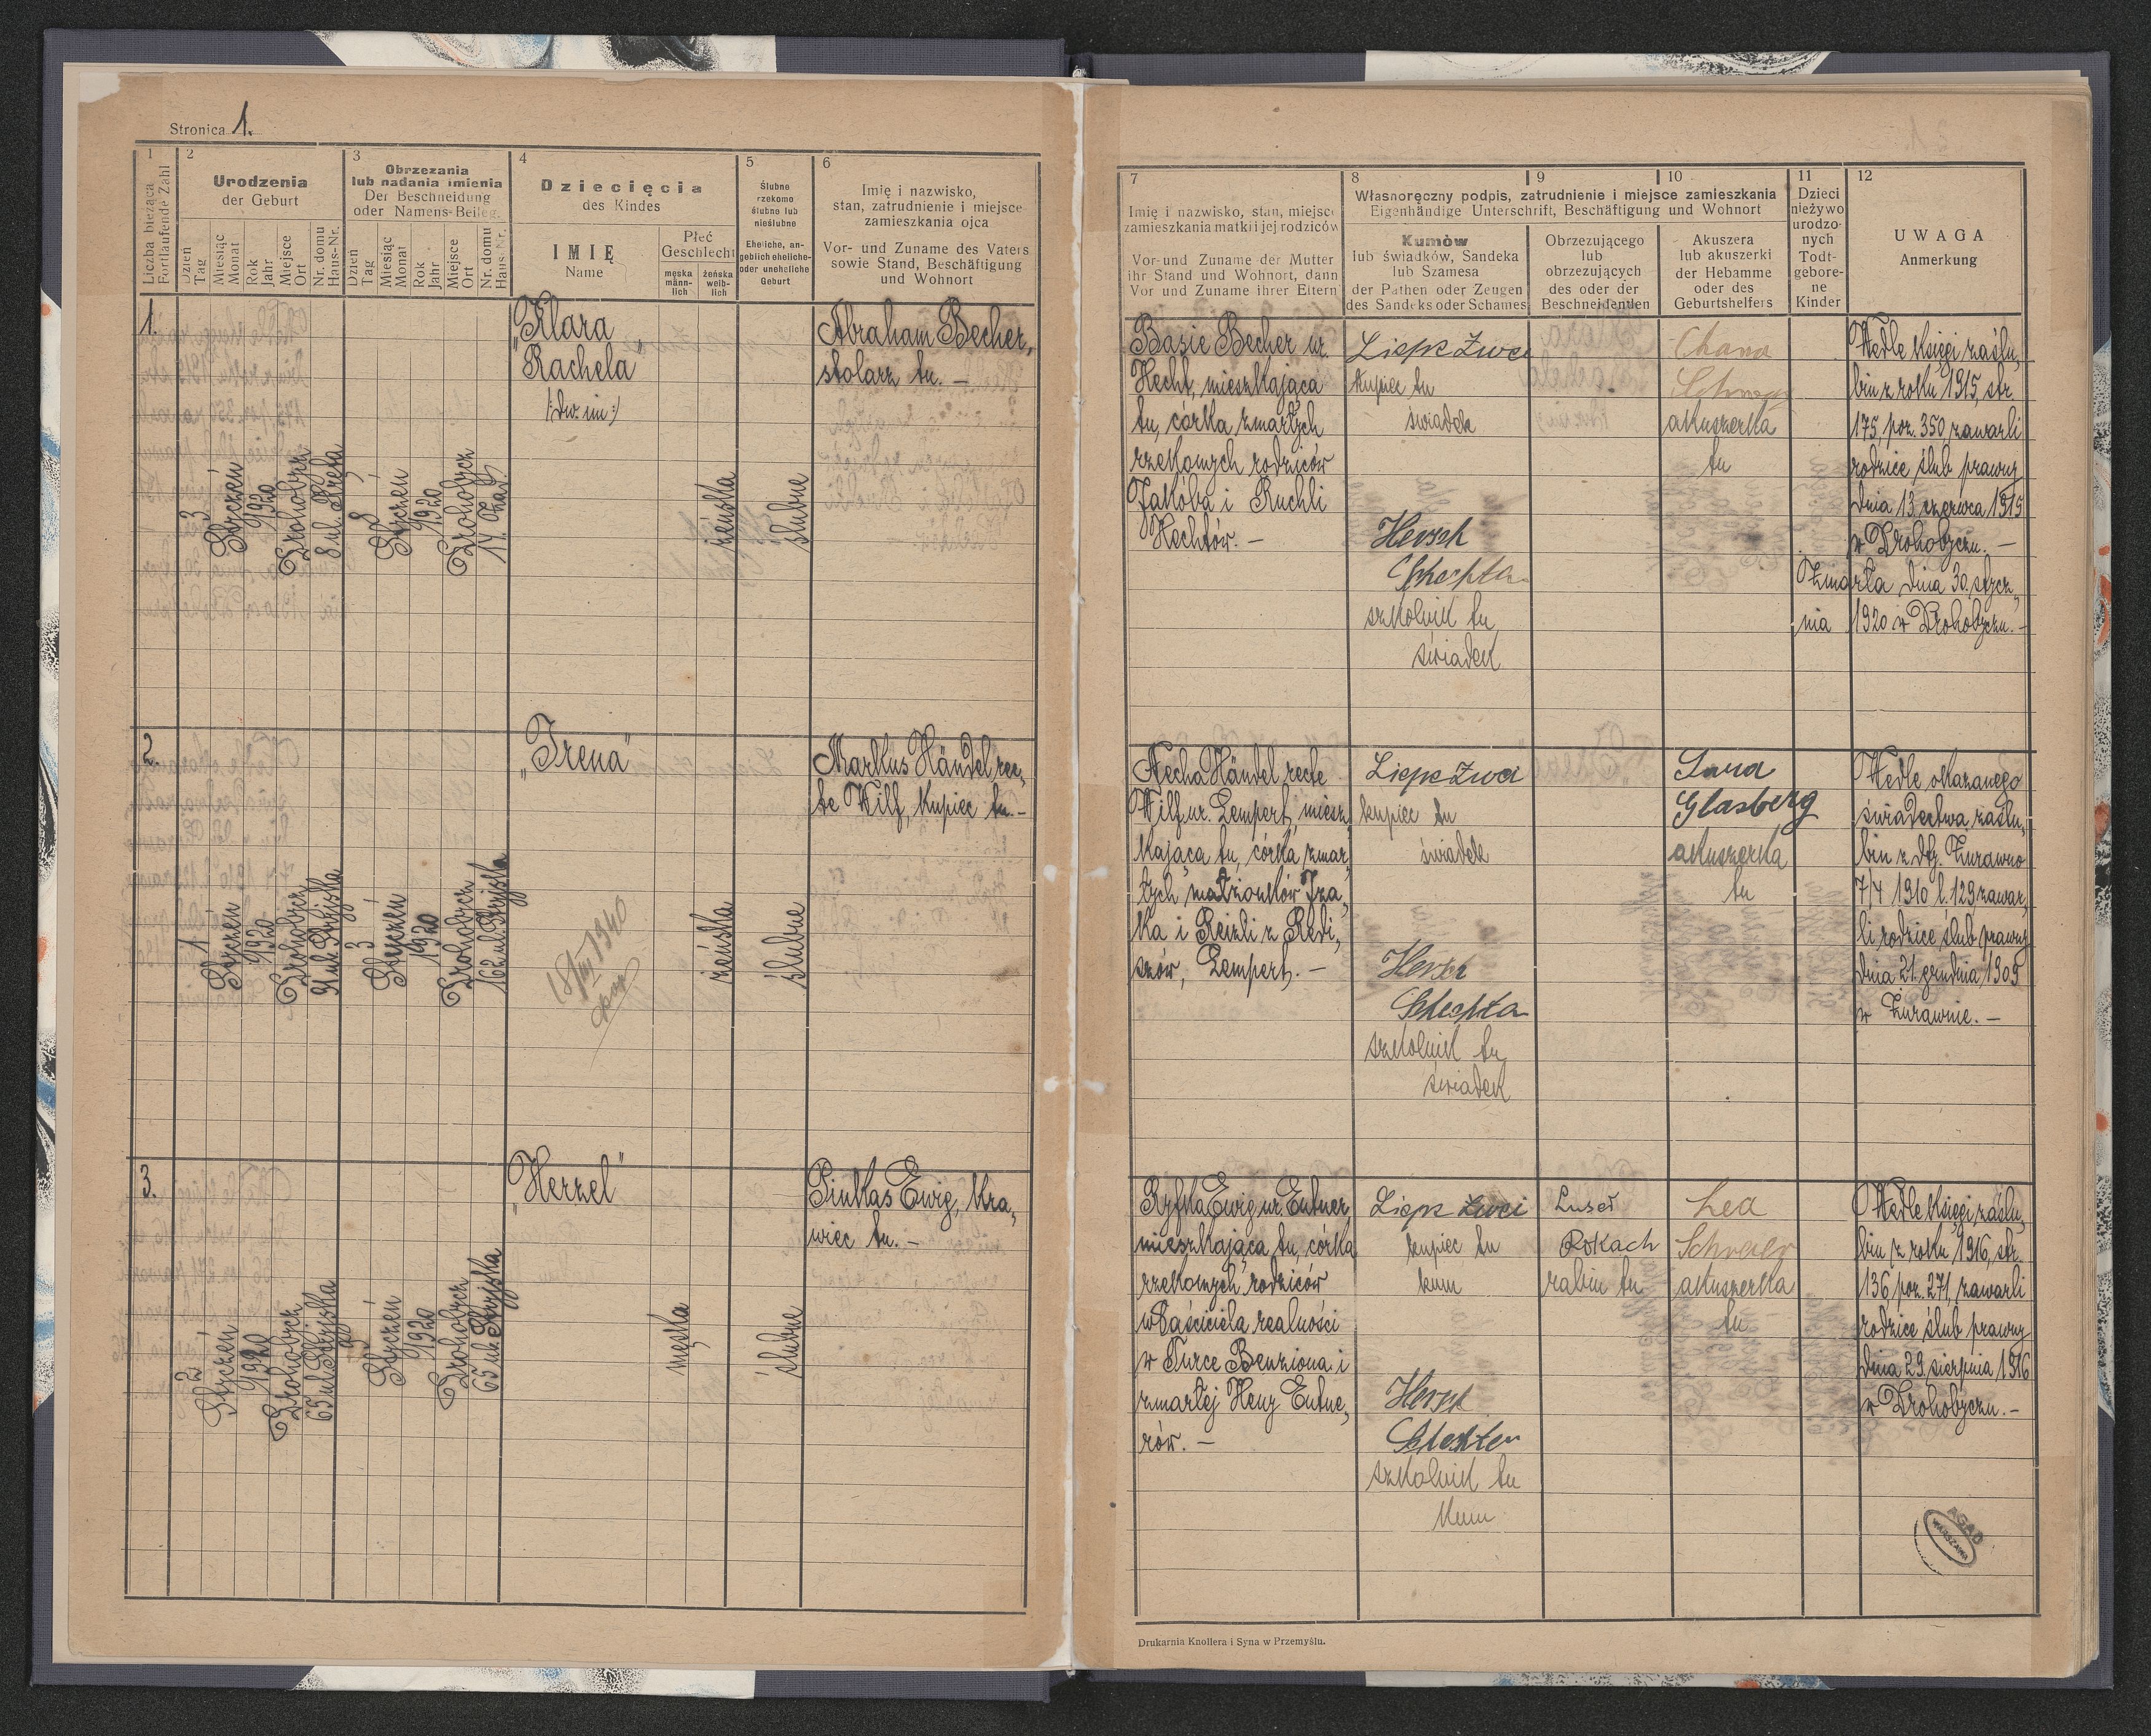 Stronica 1.
1
Liczba bieżąca
Fortlaufende Zahl
2
Urodzenia
der Geburt
Dzień
Tag
Miesiąc
Monat
Rok
Jahr
Miejsce
Ort
Nr. domu
Haus-Nr.
3
Obrzezania
lub nadania imienia
Der Beschneidung
oder Namens-Beileg.
Dzień
Tag
Miesiąc
Monat
Rok
Jahr
Miejsce
Ort
Nr. domu
Haus-Nr.
4
Dziecięcia
des Kindes
IMIĘ
Name
Płeć
Geschlecht
męska
männ-
lich
żeńska
weib-
lich
5
Ślubne
rzekomo
ślubne lub
nieślubne
Eheliche, an-
geblich eheliche-
oder uneheliche
Geburt
6
Imię i nazwisko,
stan, zatrudnienie i miejsce
zamieszkania ojca
Vor- und Zuname des Vaters
sowie Stand, Beschäftigung
und Wohnort
1.
3
Styczeń
1920
Drohobycz
8
Styczeń
1920
Drohobycz
„Klara
Rachela"
/:dw. im:/
żeńska
ślubne
Abraham Becher,
stolarz tu. –
2.
1
Styczeń
1920
Drohobycz
91 ul. Stryjska
3
Styczeń
1920
Drohobycz
162 ul. Stryjska
„Irena"
18/III 1940
żeńska
ślubne
Markus Händel rec„
te Wilf, kupiec tu. –
3.
2
Styczeń
1920
Drohobycz
65 ul. Stryjska
9
Styczeń
1920
Drohobycz
65 ul. Stryjska
„Herzel"
męska
ślubne
Pinkas Ewig, kra„
wiec tu. –
7
Imię i nazwisko, stan, miejsce
zamieszkania matki i jej rodziców
Vor-und Zuname der Mutter
ihr Stand und Wohnort, dann
Vor und Zuname ihrer Eltern
8
9
10
Własnoręczny podpis, zatrudnienie i miejsce zamieszkania
Eigenhändige Unterschrift, Beschäftigung und Wohnort
Kumów
lub świadków, Sandeka
lub Szamesa
der Pathen oder Zeugen
des Sandeks oder Schames
Obrzezującego
lub
obrzezujących
des oder der
Beschneidenden
Akuszera
lub akuszerki
der Hebamme
oder des
Geburtshelfers
11
Dzieci
nieżywo
urodzo-
nych
Todt-
gebore-
ne
Kinder
12
UWAGA
Anmerkung
Basie Becher ur.
Hecht, mieszkająca
tu, córka zmarłych
rzekomych rodziców
Jakóba i Ruchli
Hechtów. –
kupiec tu
świadek
Hersch
szkolnik tu
świadek
Chana
akuszerka
tu
Wedle księgi zaślu„
bin z roku 1915, str.
175, poz. 350 zawarli
rodzice ślub prawny
dnia 13. czerwca 1915
w Drohobyczu. –
Zmarła dnia 30. stycz„
nia 1920 w Drohobyczu. –
Necha Händel recte
Wilf ur. Lempert, miesz„
kająca tu, córka zmar„
łych małżonków Iza„
ka i Reizli z Redi„
szów, Lempert. –
kupiec tu
świadek
Hersch
szkolnik tu
świadek
Sara
Glasberg
akuszerka
tu
Wedle okazanego
świadectwa zaślu„
bin z dtg. Żurawno
7/4 1910 l. 129 zawar„
li rodzice ślub prawny
dnia 21. grudnia 1909
w Żurawnie. –
Ryfka Ewig ur. Eutner,
mieszkająca tu, córka
rzekomych rodziców
właściciela realności
w Turce Benziona i
zmarłej Heny Eutne„
rów. –
kupiec tu
kum
Hersch
Schechter
szkolnik tu
kum
Rokach
rabin tu
Lea
akuszerka
tu
Wedle księgi zaślu„
bin z roku 1916, str.
136 poz. 271, zawarli
rodzice ślub prawny
dnia 29. sierpnia 1916
w Drohobyczu. –
AGAD
WARSZAWA
Drukarnia Knollera i Syna w Przemyślu.